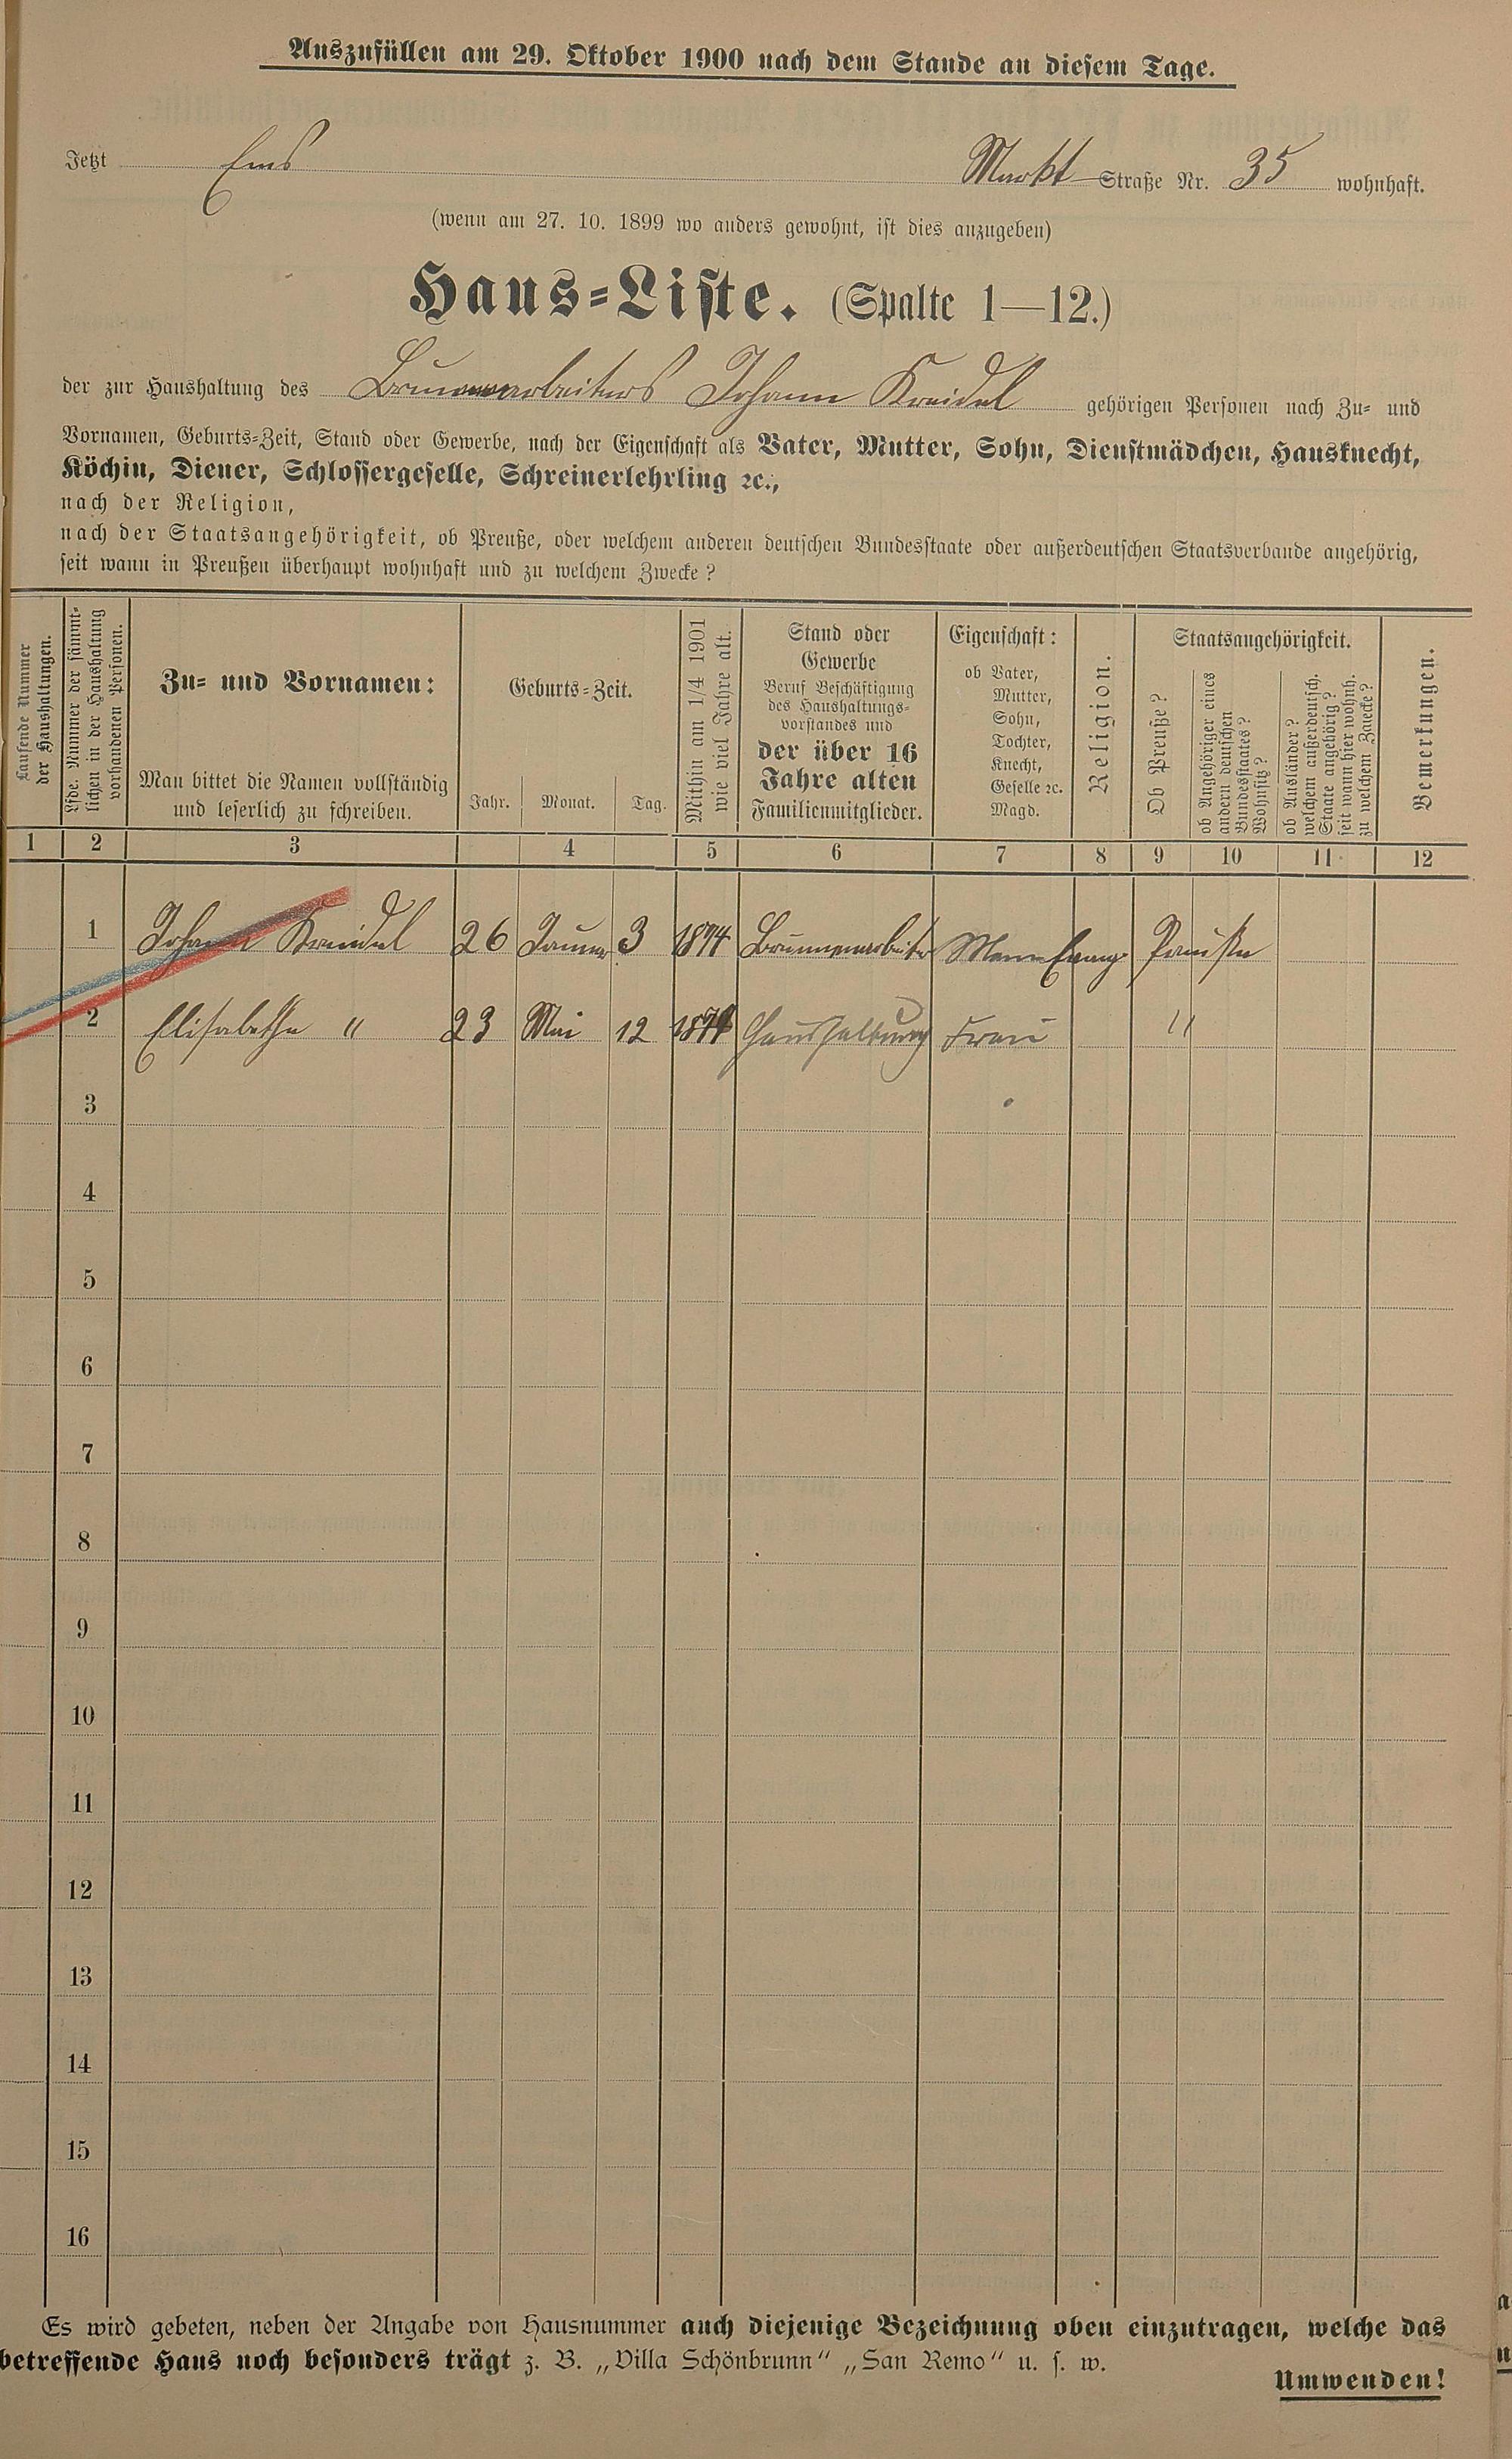 Auszufüllen am 29. Oktober 1900 nach dem Stande an diesem Tage.
Jetzt Ems Markt Straße Nr. 35 wohnhaft.
(wenn am 27. 10. 1899 wo anders gewohnt, ist dies anzugeben)
Haus-Liste. (Spalte 1—12.)
der zur Haushaltung des Brunnenarbeiters Johann Kreidel gehörigen Personen nach Zu- und
Vornamen, Geburts-Zeit, Stand oder Gewerbe, nach der Eigenschaft als Vater, Mutter, Sohn, Dienstmädchen, Hausknecht,
Köchin, Diener, Schlossergeselle, Schreinerlehrling ꝛc.,
nach der Religion,
nach der Staatsangehörigkeit, ob Preuße, oder welchem anderen deutschen Bundesstaate oder außerdeutschen Staatsverbande angehörig,
seit wann in Preußen überhaupt wohnhaft und zu welchem Zwecke?
Laufende Nummer
der Haushaltungen.
Lfde. Nummer der sämmt-
lichen in der Haushaltung
vorhandenen Personen.
Zu- und Vornamen:
Man bittet die Namen vollständig
und leserlich zu schreiben.
Geburts-Zeit.
Jahr. Monat. Tag.
Mithin am 1/4 1901
wie viel Jahre alt.
Stand oder
Gewerbe
Beruf Beschäftigung
des Haushaltungs-
vorstandes und
der über 16
Jahre alten
Familienmitglieder.
Eigenschaft:
ob Vater,
Mutter,
Sohn,
Tochter,
Knecht,
Geselle ꝛc.
Magd.
Religion.
Staatsangehörigkeit.
Ob Preuße?
ob Angehöriger eines
andern deutschen
Bundesstaates?
Wohnsitz?
ob Ausländer?
welchem außerdeutsch.
Staate angehörig?
seit wann hier wohnh.
zu welchem Zwecke?
Bemerkungen.
1 2 3 4 5 6 7 8 9 10 11 12
1 Johann Kreidel 26 Januar 3 1874 Brunnenarbeiter Mann Evang. Preuße
2 Elisabethe " 23 Mai 12 Haushaltung Frau "
3
4
5
6
7
8
9
10
11
12
13
14
15
16
Es wird gebeten, neben der Angabe von Hausnummer auch diejenige Bezeichnung oben einzutragen, welche das
betreffende Haus noch besonders trägt z. B. „Villa Schönbrunn" „San Remo" u. s. w.
Umwenden!